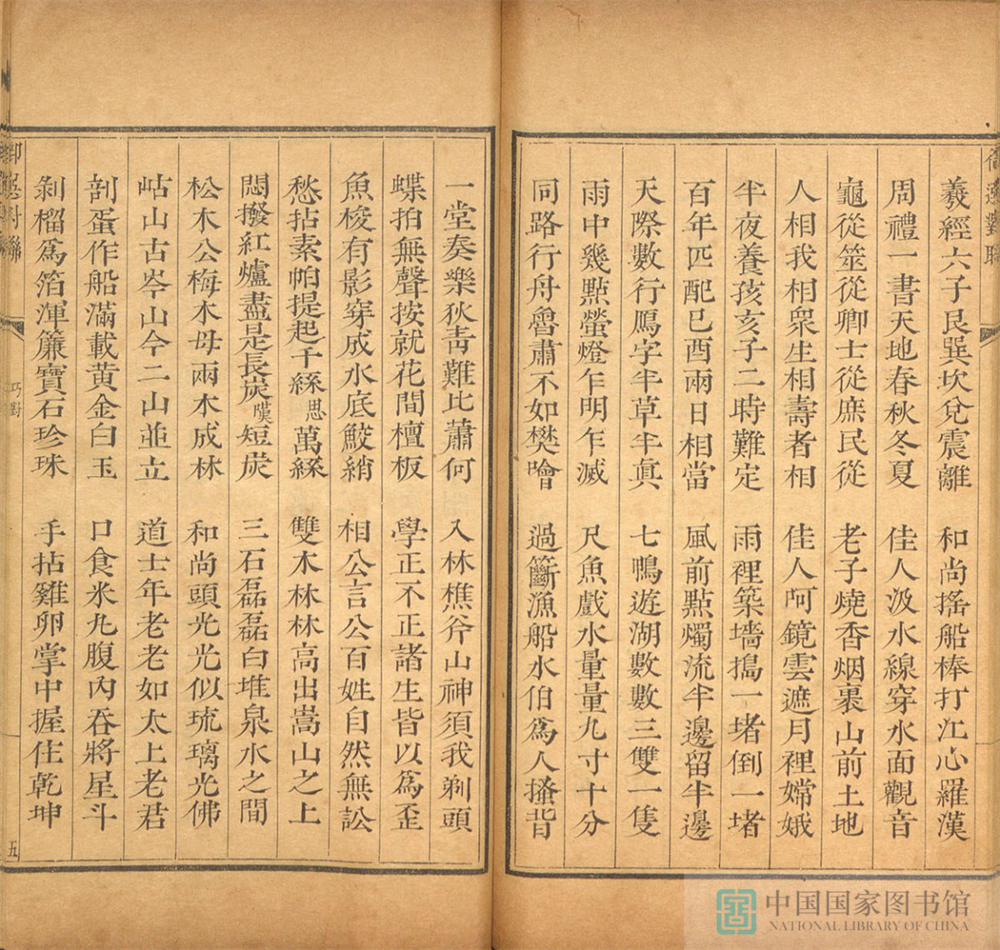 羲經六子艮巽坎兌震離 和尚搖船棒打江心羅漢
周禮一書天地春秋冬夏 佳人汲水線穿水面觀音
龜從筮從卿士從庶民從 老子燒香烟裏山前土地
人相我相眾生相壽者相 佳人呵鏡雲遮月裡嫦娥
半夜養孩亥子二時難定 雨裡築墻搗一堵倒一堵
百年匹配巳酉兩日相當 風前點燭流半邊留半邊
天際數行鴈字半草半真 七鴨遊湖數數三雙一隻
雨中幾點螢燈乍明乍滅 尺魚戲水量量九寸十分
同路行舟魯肅不如樊噲 過籪漁船水伯爲人搔背
一堂奏樂狄靑難比蕭何 入林樵斧山神須我剃頭
蝶拍無聲按就花間檀板 學正不正諸生皆以爲歪
魚梭有影穿成水底鮫綃 相公言公百姓自然無訟
愁拈素帕提起千絲思萬絲 雙木林林高出嵩山之上
悶撥紅爐盡是長炭嘆短炭 三石磊磊白堆泉水之間
松木公梅木母兩木成林 和尚頭光光似琉璃光佛
岵山古岑山今二山並立 道士年老老如太上老君
剖蛋作船滿載黃金白玉 口食米丸腹內吞將星斗
剝榴爲箔渾簾寶石珍珠 手拈雞卵掌中握住乾坤
對聯
巧對
五
中国国家图书馆
NATIONAL LIBRARY OF CHINA